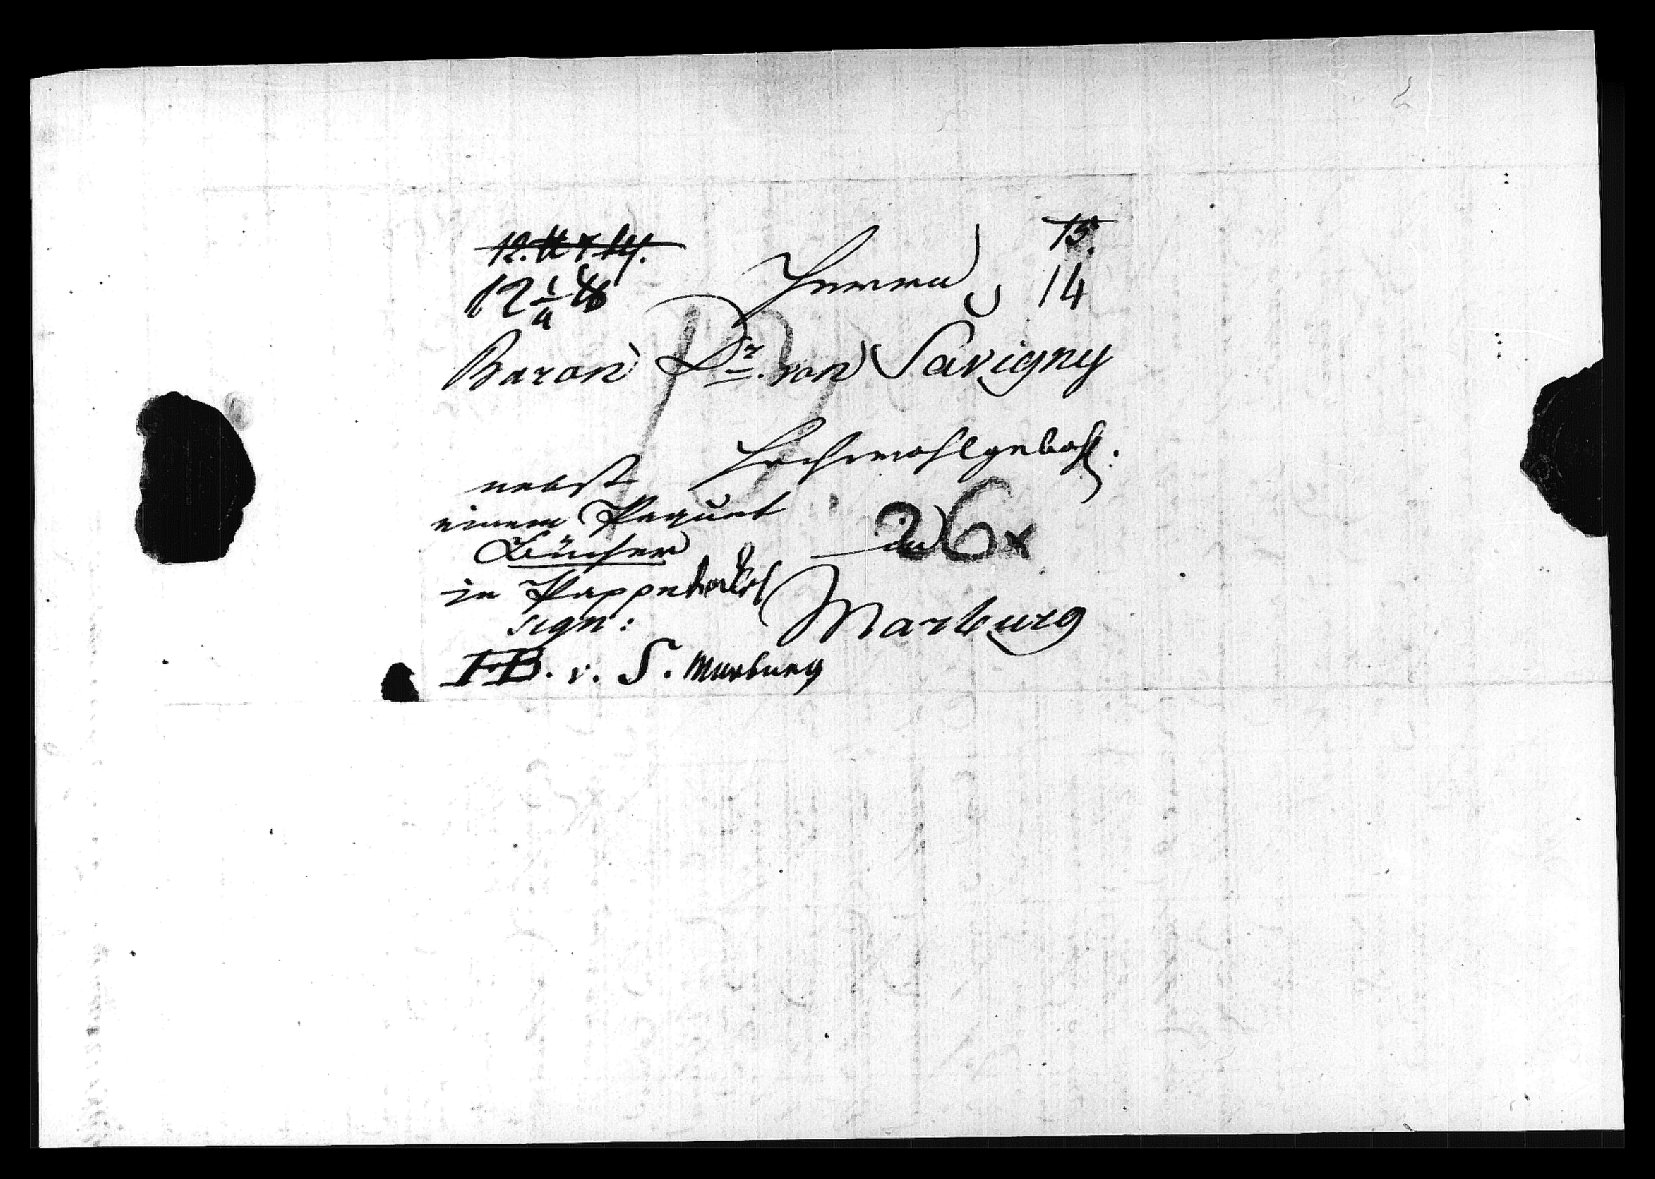 Herrn
13.
14
12 1/4 ℔
Baron Dr. von Savigny
Hochwohlgeb.
nebst
einem Paquet
Bücher
in Pappendeckel
sign:
H B. v. S. Marburg
in
26x
Marburg